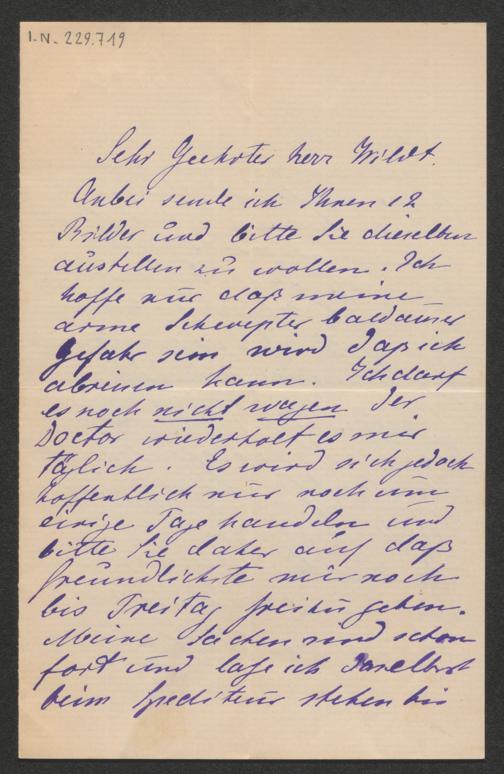 I.N. 229.719
Sehr Geehrter Herr Wildt.
Anbei sende ich Ihnen 12
Bilder und bitte Sie dieselben
austellen zu wollen. Ich
hoffe nur daß meine
arme Schwester bald außer
Gefahr sein wird daß ich
abreisen kann. Ich darf
es noch nicht wagen der
Doctor wiederholt es mir
täglich. Es wird sich jedoch
hoffentlich nur noch um
einige Tage handeln und
bitte Sie daher auf daß
freundlichste mir noch
bis Freitag frei zu geben.
Meine Sachen sind schon
fort und laße ich daselbst
beim Spediteur stehen bis